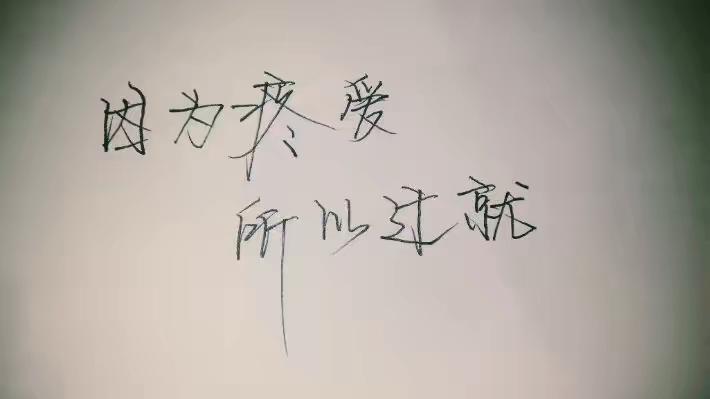 因为疼爱
所以过就